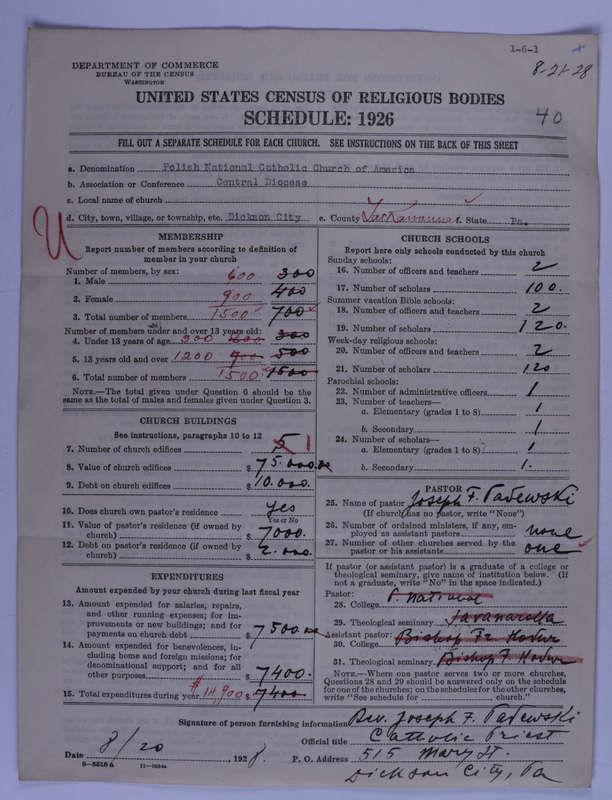 1-6-1
8-21-28
DEPARTMENT OF COMMERCE
BUREAU OF THE CENSUS
WASHINGTON
UNITED STATES CENSUS OF RELIGIOUS BODIES
SCHEDULE: 1926
40
FILL OUT A SEPARATE SCHEDULE FOR EACH CHURCH. SEE INSTRUCTIONS ON THE BACK OF THIS SHEET
a. Denomination Polish National Catholic Church of America
b. Association or Conference Central Diocese
c. Local name of church
d. City, town, village, or township, etc. Dickson City e. County Lackawanna f. State Pa.
MEMBERSHIP
Report number of members according to definition of
member in your church
Number of members, by sex:
1. Male 600 300
2. Female 900 400
3. Total number of members 1500 700
Number of members under and over 13 years old:
4. Under 13 years of age 300 600 300
5. 13 years old and over 1200 900 500
6. Total number of members 1500 1500
NOTE.—The total given under Question 6 should be
same as the total of males and females given under Question 3.
CHURCH BUILDINGS
See instructions, paragraphs 10 to 12
7. Number of church edifices 5 1
8. Value of church edifices $ 75.000.00
9. Debt on church edifices $ 10.000.
10. Does church own pastor's residence yes
Yes or No
11. Value of pastor's residence (if owned by
church) $ 7000.
12. Debt on pastor's residence (if owned by
church) $ 2.000.
EXPENDITURES
Amount expended by your church during last fiscal year
13. Amount expended for salaries, repairs,
and other running expenses; for im-
provements or new buildings; and for
payments on church debt $ 7500.00
14. Amount expended for benevolences, in-
cluding home and foreign missions; for
denominational support; and for all
other purposes $ 7400.
15. Total expenditures during year $14,900 $ 7400
CHURCH SCHOOLS
Report here only schools conducted by this church
Sunday schools:
16. Number of officers and teachers 2
17. Number of scholars 100.
Summer vacation Bible schools:
18. Number of officers and teachers 2
19. Number of scholars 120.
Week-day religious schools:
20. Number of officers and teachers 2
21. Number of scholars 120
Parochial schools:
22. Number of administrative officers 1
23. Number of teachers—
a. Elementary (grades 1 to 8) 1
b. Secondary 1
24. Number of scholars—
a. Elementary (grades 1 to 8) 1
b. Secondary 1.
PASTOR
25. Name of pastor Joseph F. Padewski
(If church has no pastor, write "None")
26. Number of ordained ministers, if any, em-
ployed as assistant pastors none
27. Number of other churches served by the
pastor or his assistants one
If pastor (or assistant pastor) is a graduate of a college or
theological seminary, give name of institution below. (If
not a graduate, write "No" in the space indicated.)
Pastor:
28. College P. National
29. Theological seminary Savanarolla
Assistant pastor:
30. College Bishop Fr. Hodur
31. Theological seminary Bishop F. Hodur
NOTE.—Where one pastor serves two or more churches,
Questions 28 and 29 should be answered only on the schedule
for one of the churches; on the schedules for the other churches,
write "See schedule for church."
Signature of person furnishing information Rev. Joseph F. Padewski
Official title Catholic Priest
Date 8/20, 1928. P. O. Address 515 Mary St.
Dickson City, Pa
8-5518a 11-9264a